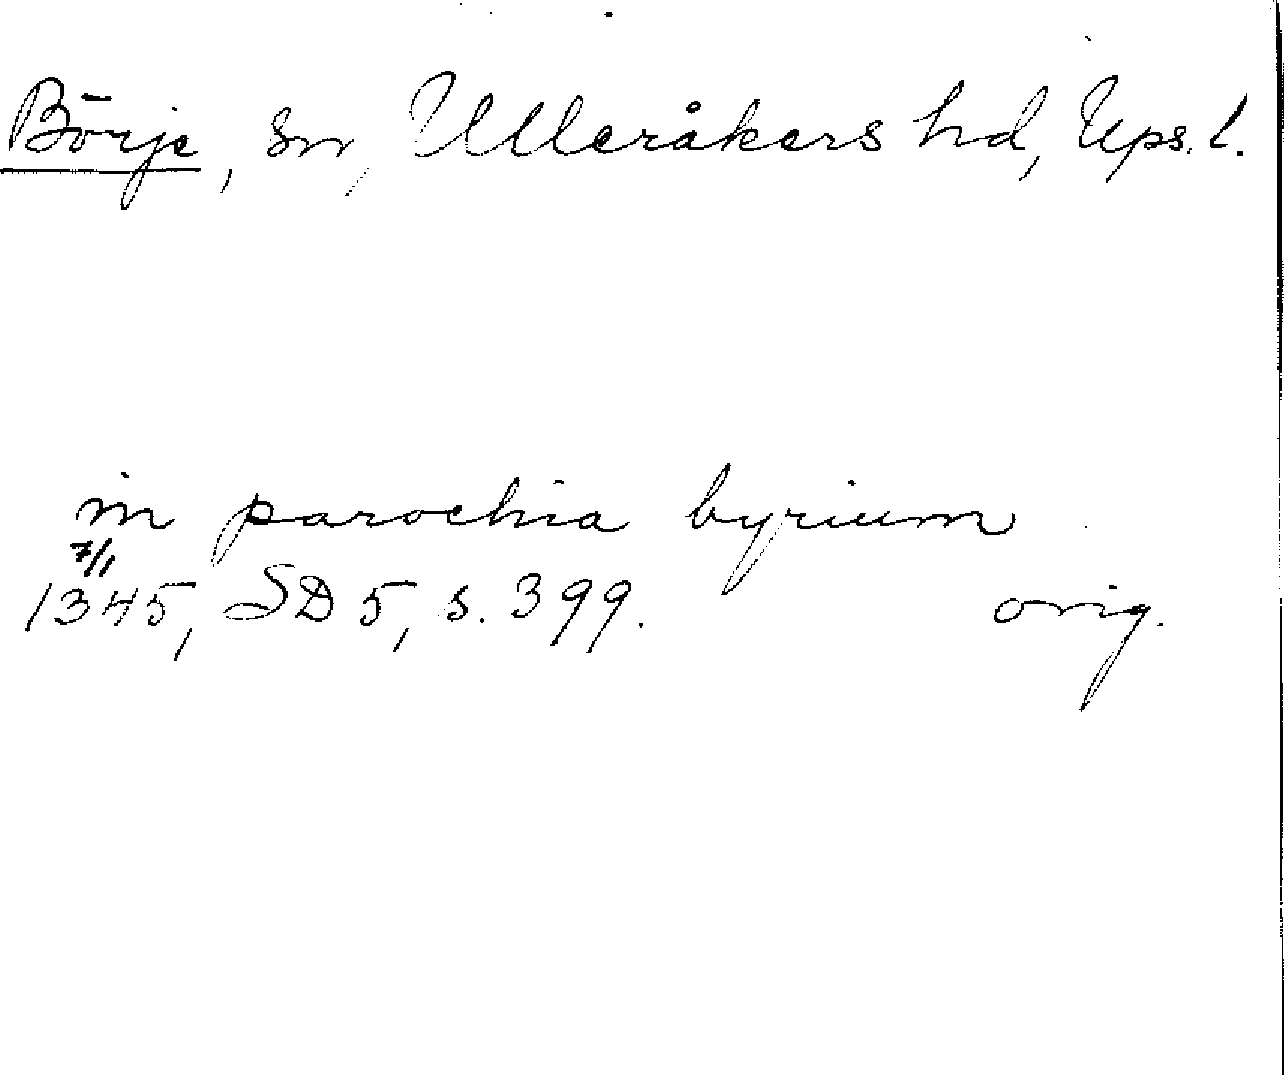 Börje, sn, Ulleråkers hd, Ups. l.
in parochia byrium
7/1
1345, SD 5, s. 399. orig.